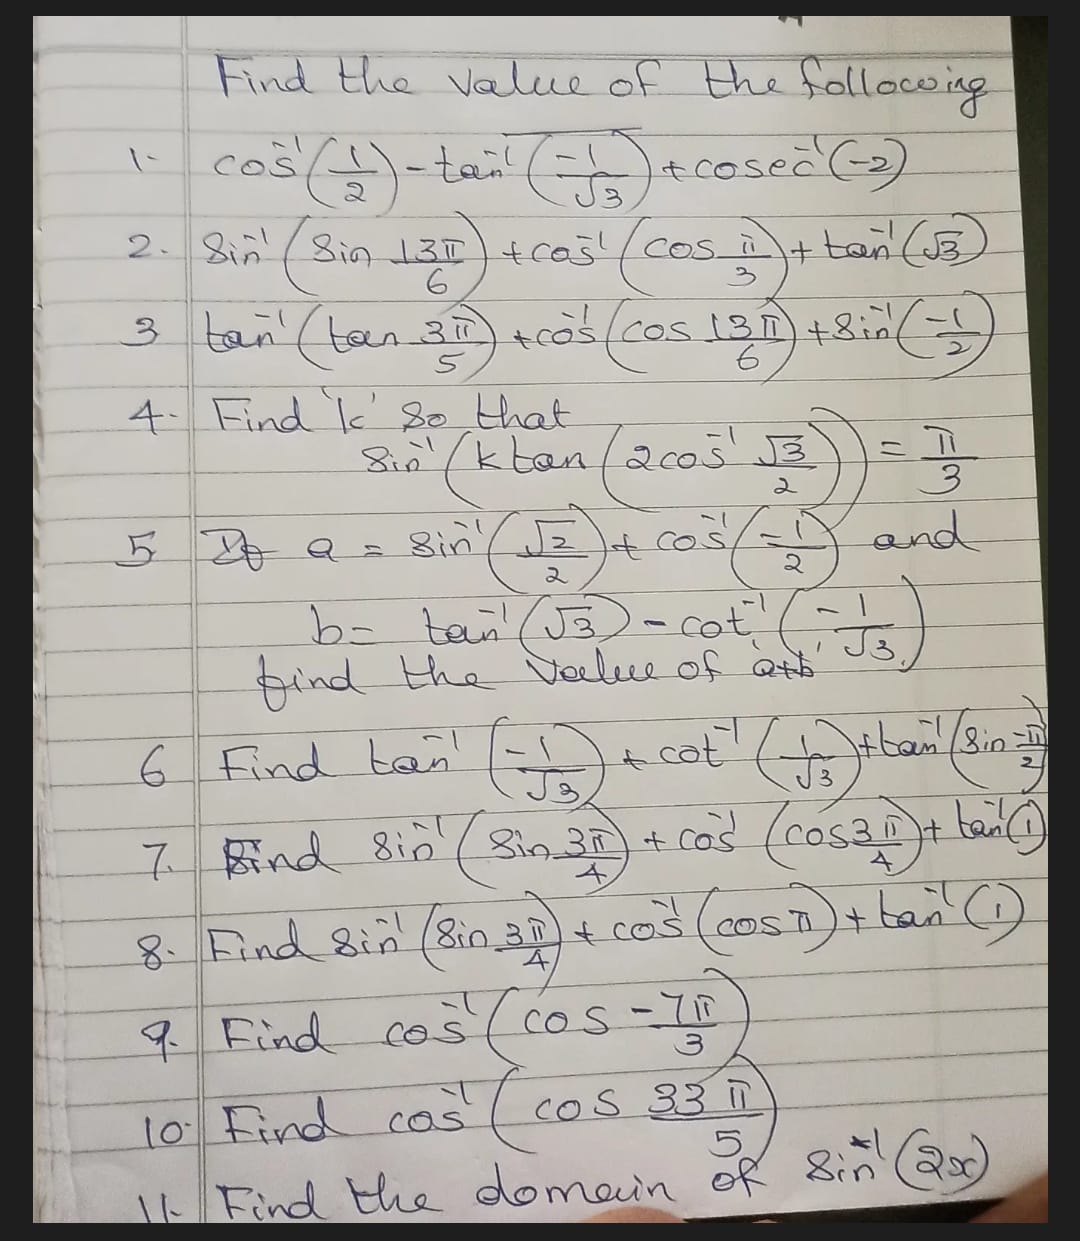 Find the value of the following
1- cos⁻¹(1/2) - tan⁻¹(-1/√3) + cosec⁻¹(-2)
2. Sin⁻¹(Sin 13π/6) + cos⁻¹(cos π/3) + tan⁻¹(√3)
3 tan⁻¹(tan 3π/5) + cos⁻¹(cos 13π/6) + Sin⁻¹(-1/2)
4. Find 'k' So that
Sin⁻¹(k tan(2cos⁻¹ √3/2)) = π/3
5 If a = Sin⁻¹(√2/2) + cos⁻¹(-1/2) and
b = tan⁻¹(√3) - cot⁻¹(-1/√3)
find the Value of 'a+b'
6 Find tan⁻¹(-1/√3) + cot⁻¹(1/√3) + tan⁻¹(Sin -π/2)
7. Find Sin⁻¹(Sin 3π/4) + cos⁻¹(cos 3π/4) + tan⁻¹(1)
8. Find Sin⁻¹(Sin 3π/4) + cos⁻¹(cos π) + tan⁻¹(1)
9. Find cos⁻¹(cos -7π/3)
10. Find cos⁻¹(cos 33π/5)
11. Find the domain of Sin⁻¹(2x)